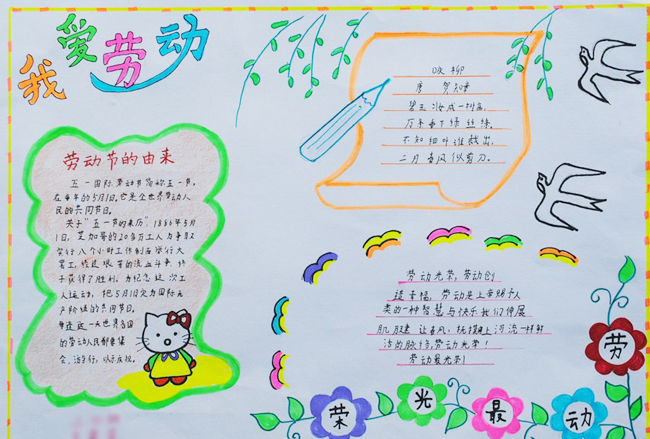 我爱劳动
咏柳
唐 贺知章
碧玉妆成一树高,
万条垂下绿丝绦。
不知细叶谁裁出,
二月春风似剪刀。
劳动节的由来
五一国际劳动节简称五一节,
在每年的5月1日。它是全世界劳动人
民的共同节日。
关于"五一节的来历",1886年5月
1日,芝加哥的20多万工人为争取
实行八个小时工作制而举行大
罢工,经过艰苦的流血斗争,终
于获得了胜利。为纪念这次工
人运动,把5月1日定为国际无
产阶级的共同节日。
在这一天世界各国
的劳动人民都要集
会,游行,以示庆祝。
劳动光荣,劳动创
造幸福,劳动是上帝赐予人
类的一种智慧,与快乐我们伸展
肌腱
春风,抚摸 上河流一样鲜
活的脉络,劳动光荣!
劳动最光荣!
劳
动
最
光
荣